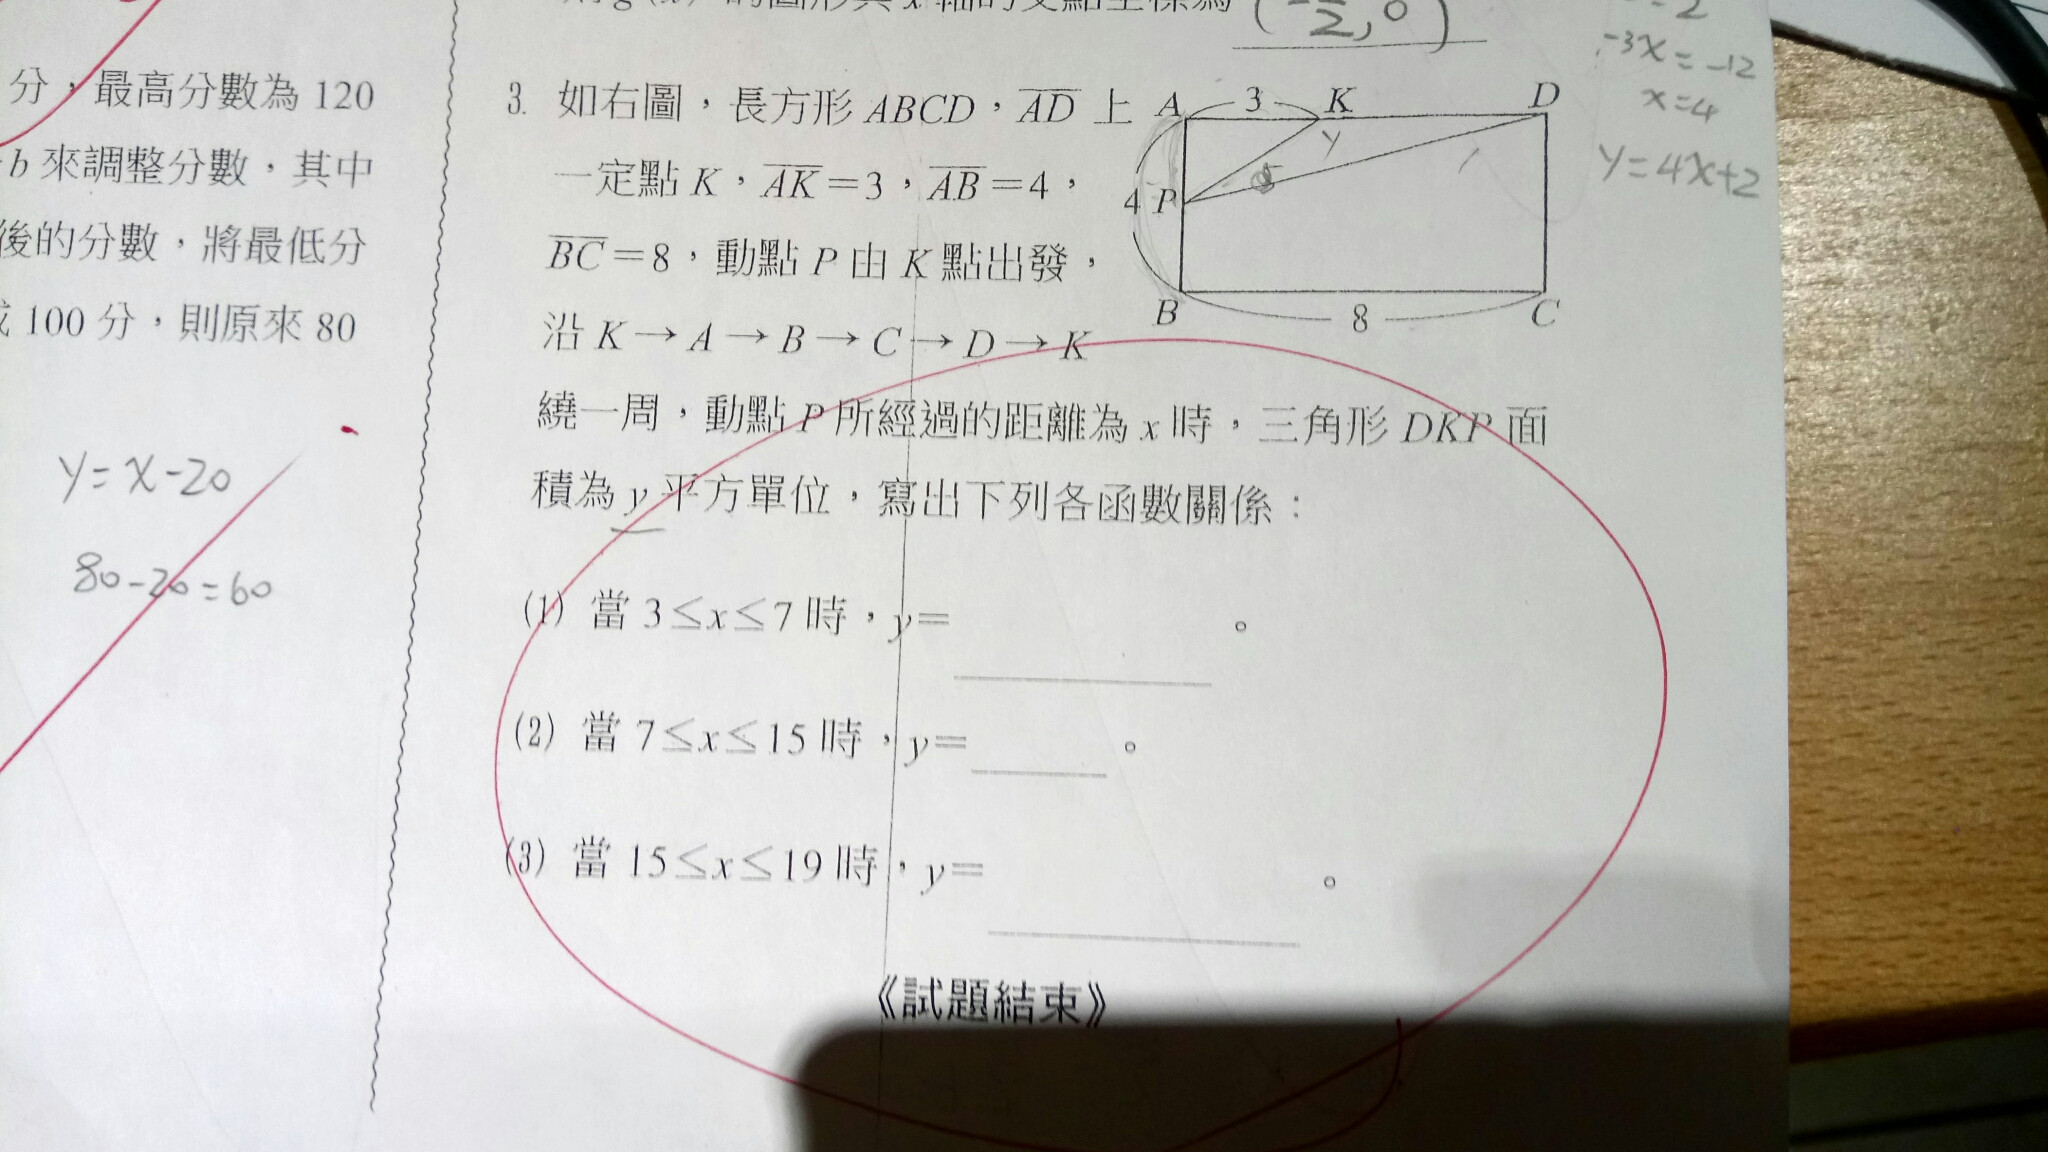 分，最高分數為 120
b 來調整分數，其中
後的分數，將最低分
100 分，則原來 80
y=x-20
80-20=60
3. 如右圖，長方形 ABCD，AD 上
一定點 K，AK=3，AB=4，
BC=8，動點 P 由 K 點出發，
沿 K→A→B→C→D→K
繞一周，動點 P 所經過的距離為 x 時，三角形 DKP 面
積為 y 平方單位，寫出下列各函數關係：
(1) 當 3≤x≤7 時，y=　　　。
(2) 當 7≤x≤15 時，y=　　　。
(3) 當 15≤x≤19 時，y=　　　。
《試題結束》
A 3 K D
y
4 P
B 8 C
-3x=-12
x=4
y=4x+2